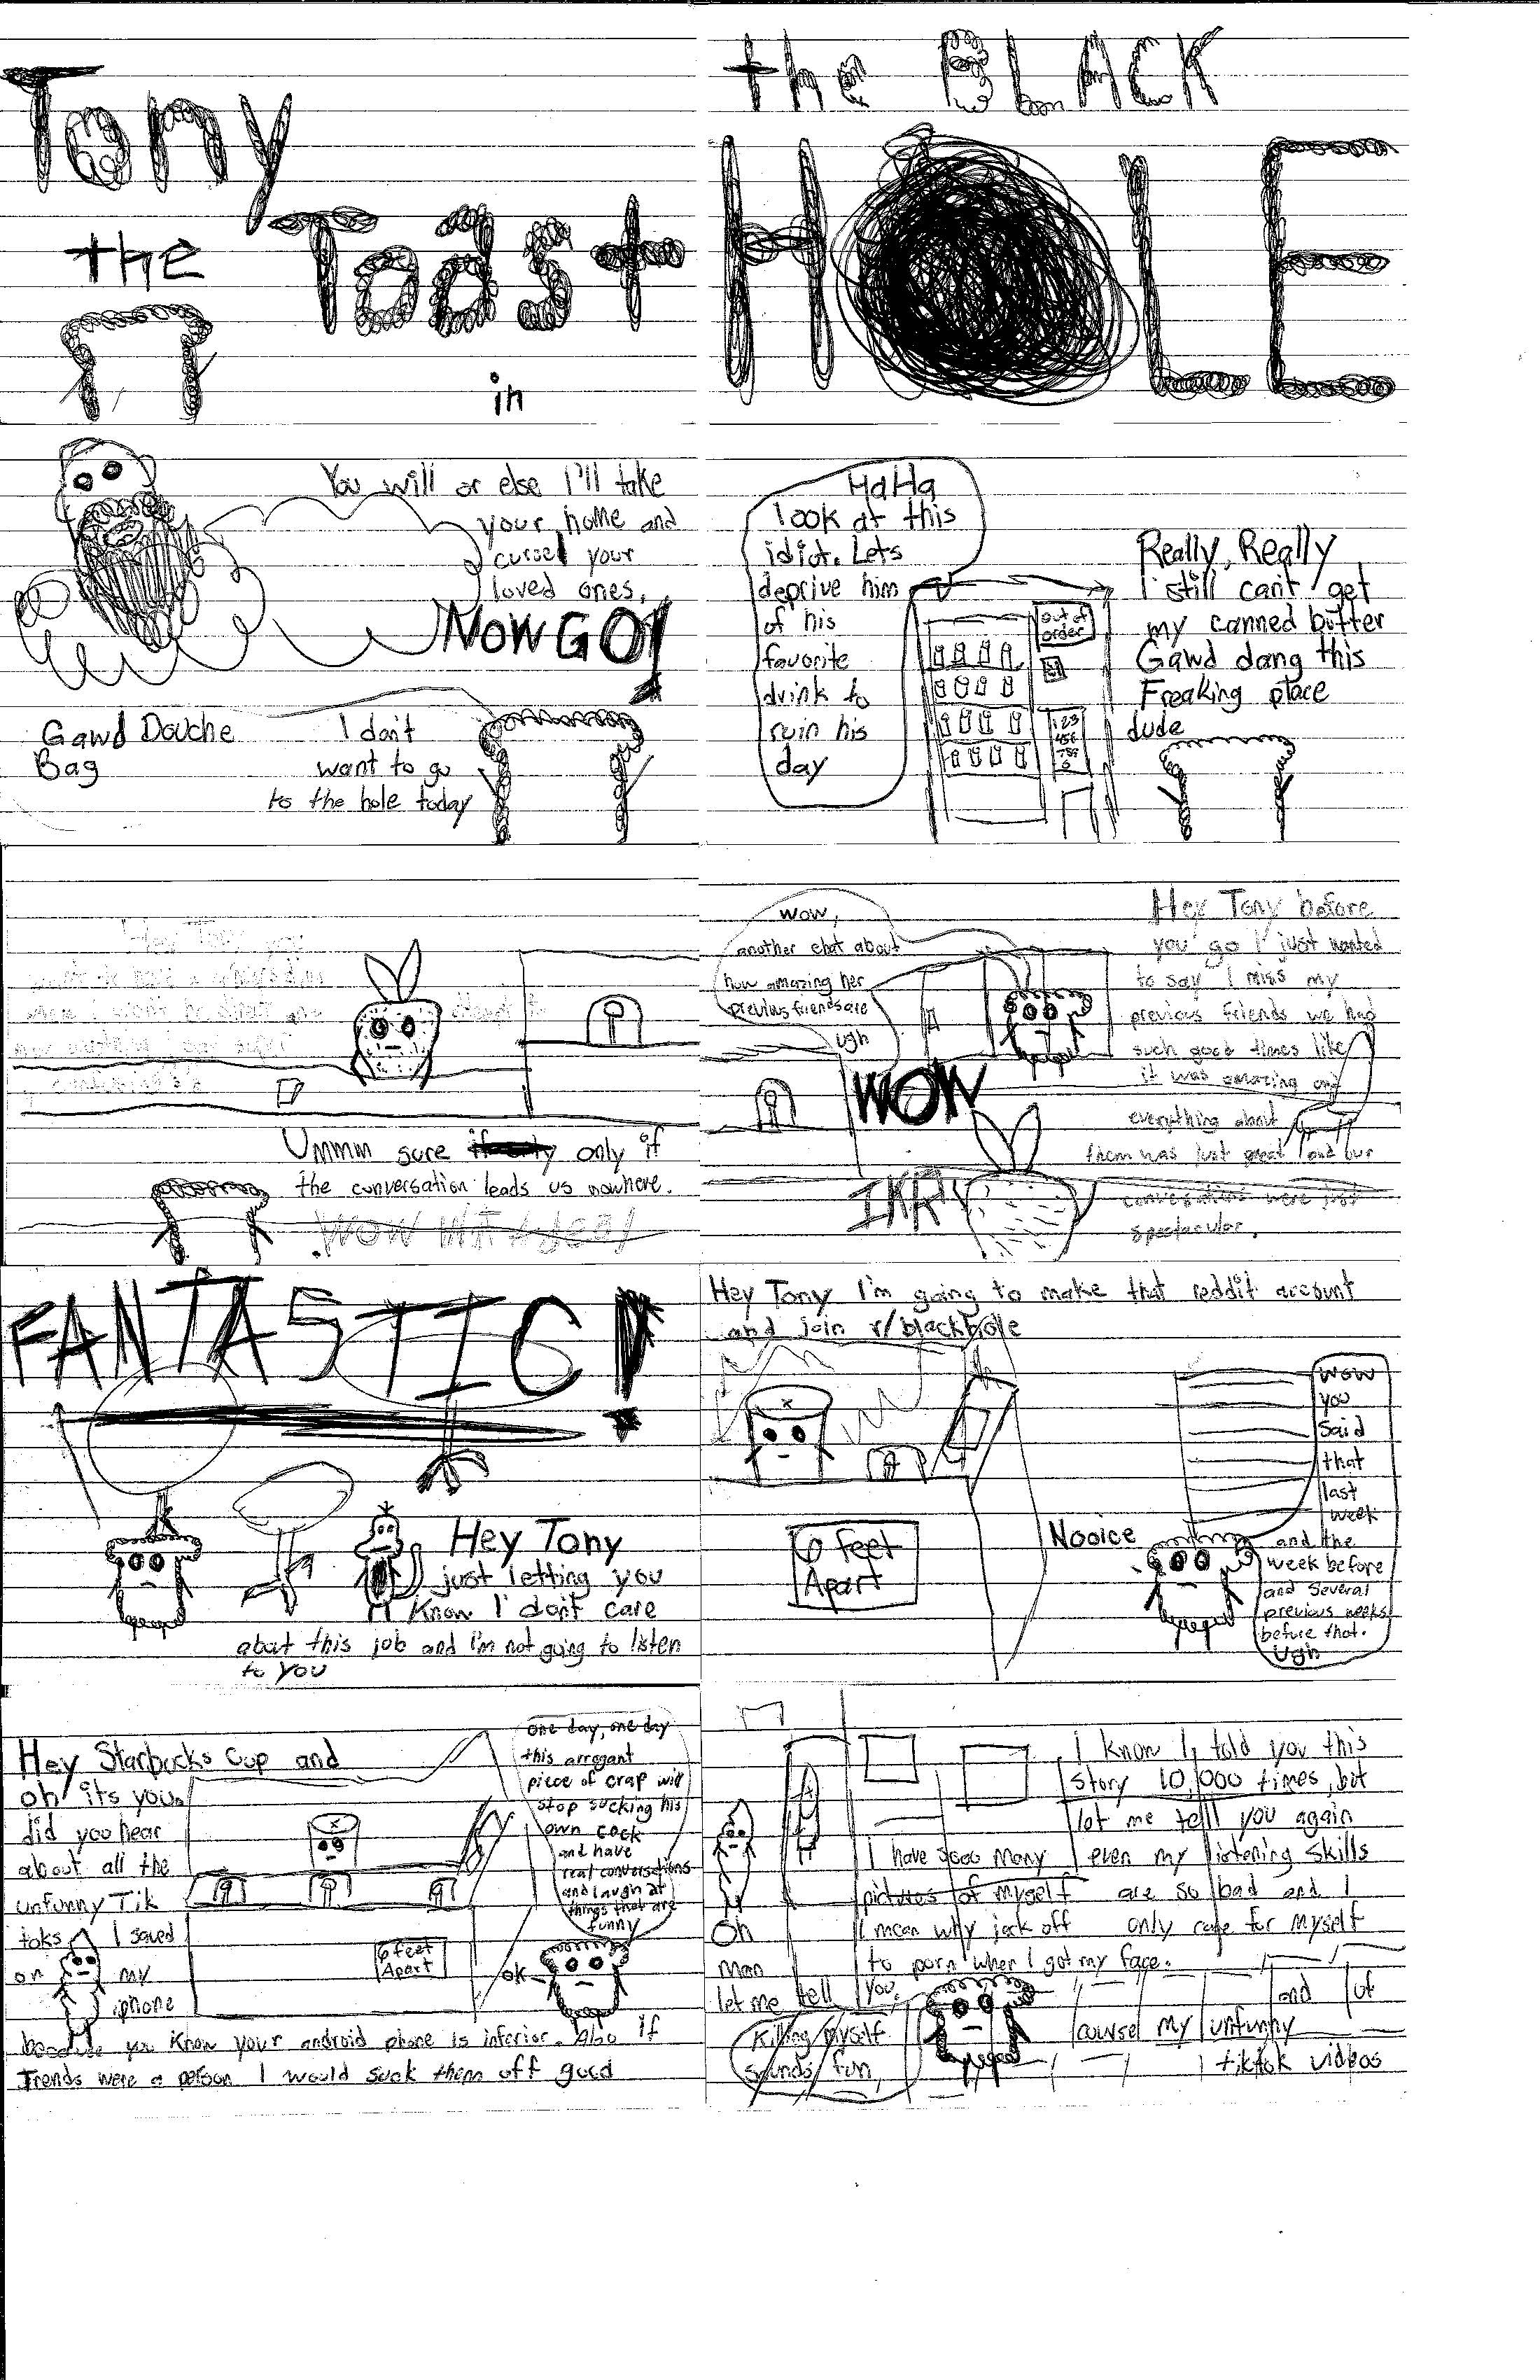 Tony
the Toast
in
the BLACK
HOLE
You will or else I'll take
your home and
curse your
loved ones,
NOW GO!
Gawd Douche
Bag
I don't
want to go
to the hole today
HaHa
look at this
idiot. Lets
deprive him
of his
favorite
drink to
ruin his
day
out of
order
$1
123
456
789
0
Really, Really
I still can't get
my canned butter
Gawd dang this
Freaking place
dude
Ummm sure only if
the conversation leads us nowhere.
wow,
another chat about
how amazing her
previous friends are
ugh
Hey Tony before
you go I just wanted
to say I miss my
previous friends we had
such good times like
it was amazing and
everything about
them was just great and our
conversations were just
spectacular.
WOW
IKR
FANTASTIC!
Hey Tony
just letting you
know I don't care
about this job and I'm not going to listen
to you
Hey Tony I'm going to make that reddit account
and join r/blackhole
6 feet
Apart
Nooice
wow
you
said
that
last
week
and the
week before
and several
previous weeks
before that.
Ugh
Hey Starbucks Cup and
oh it's you.
did you hear
about all the
unfunny Tik
toks I saved
on my
iphone
because you know your android phone is inferior. Also if
Trends were a person I would suck them off good
6 feet
Apart
ok
one day, one day
this arrogant
piece of crap will
stop sucking his
own cock
and have
real conversations
and laugh at
things that are
funny
I know I told you this
story 10,000 times, but
let me tell you again
even my listening skills
are so bad and I
only care for myself
Oh
man
let me tell you,
I have sooo many
pictures of myself
I mean why jack off
to porn when I got my face.
and of
course my unfunny
tiktok videos
Killing myself
sounds fun,